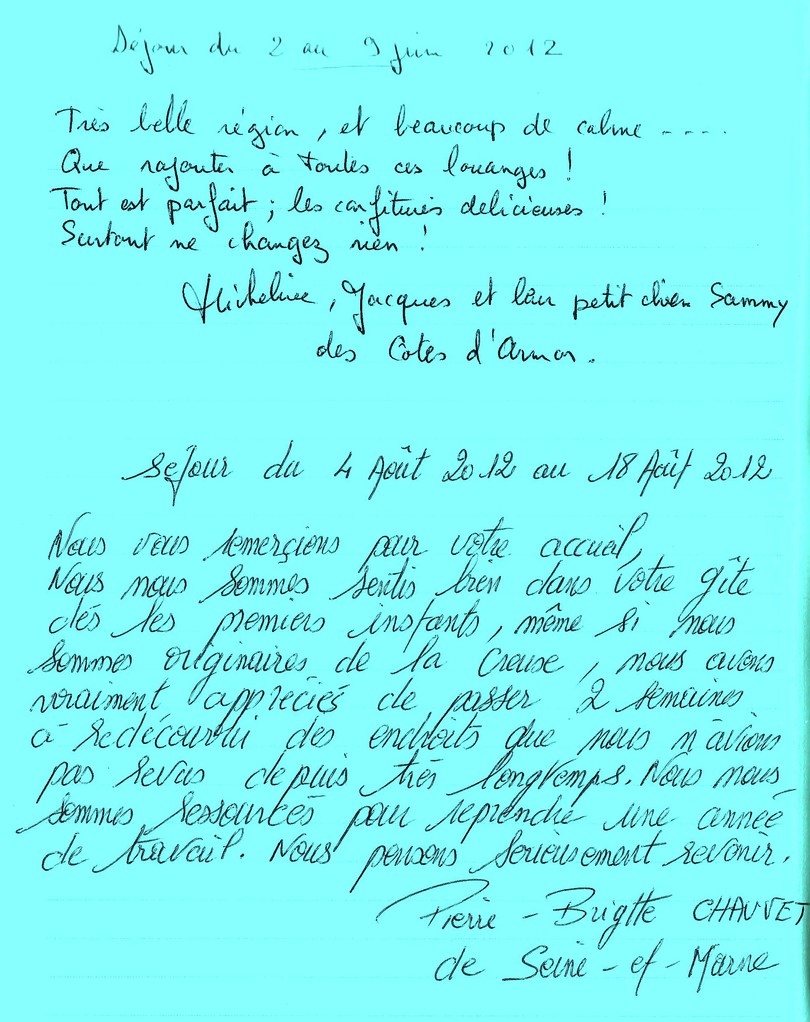 Séjour du 2 au 9 juin 2012
Très belle région, et beaucoup de calme ----
Que rajouter à toutes ces louanges !
Tout est parfait ; les confitures delicieuses !
Surtout ne changez rien !
Micheline, Jacques et leur petit chien Sammy
des Côtes d'Armor.
séjour du 4 Août 2012 au 18 Août 2012
Nous vous remerçions pour votre accueil,
Nous nous sommes sentis bien dans votre gîte
dés les premiers instants, même si nous
sommes originaires de la Creuse, nous avons
vraiment appréciés de passer 2 semaines
à redécouvrir des endroits que nous n'avions
pas revus depuis très longtemps. Nous nous
sommes ressourcés pour reprendre une année
de travail. Nous pensons serieusement revenir.
Pierre - Brigitte CHAUVET
de Seine - et - Marne